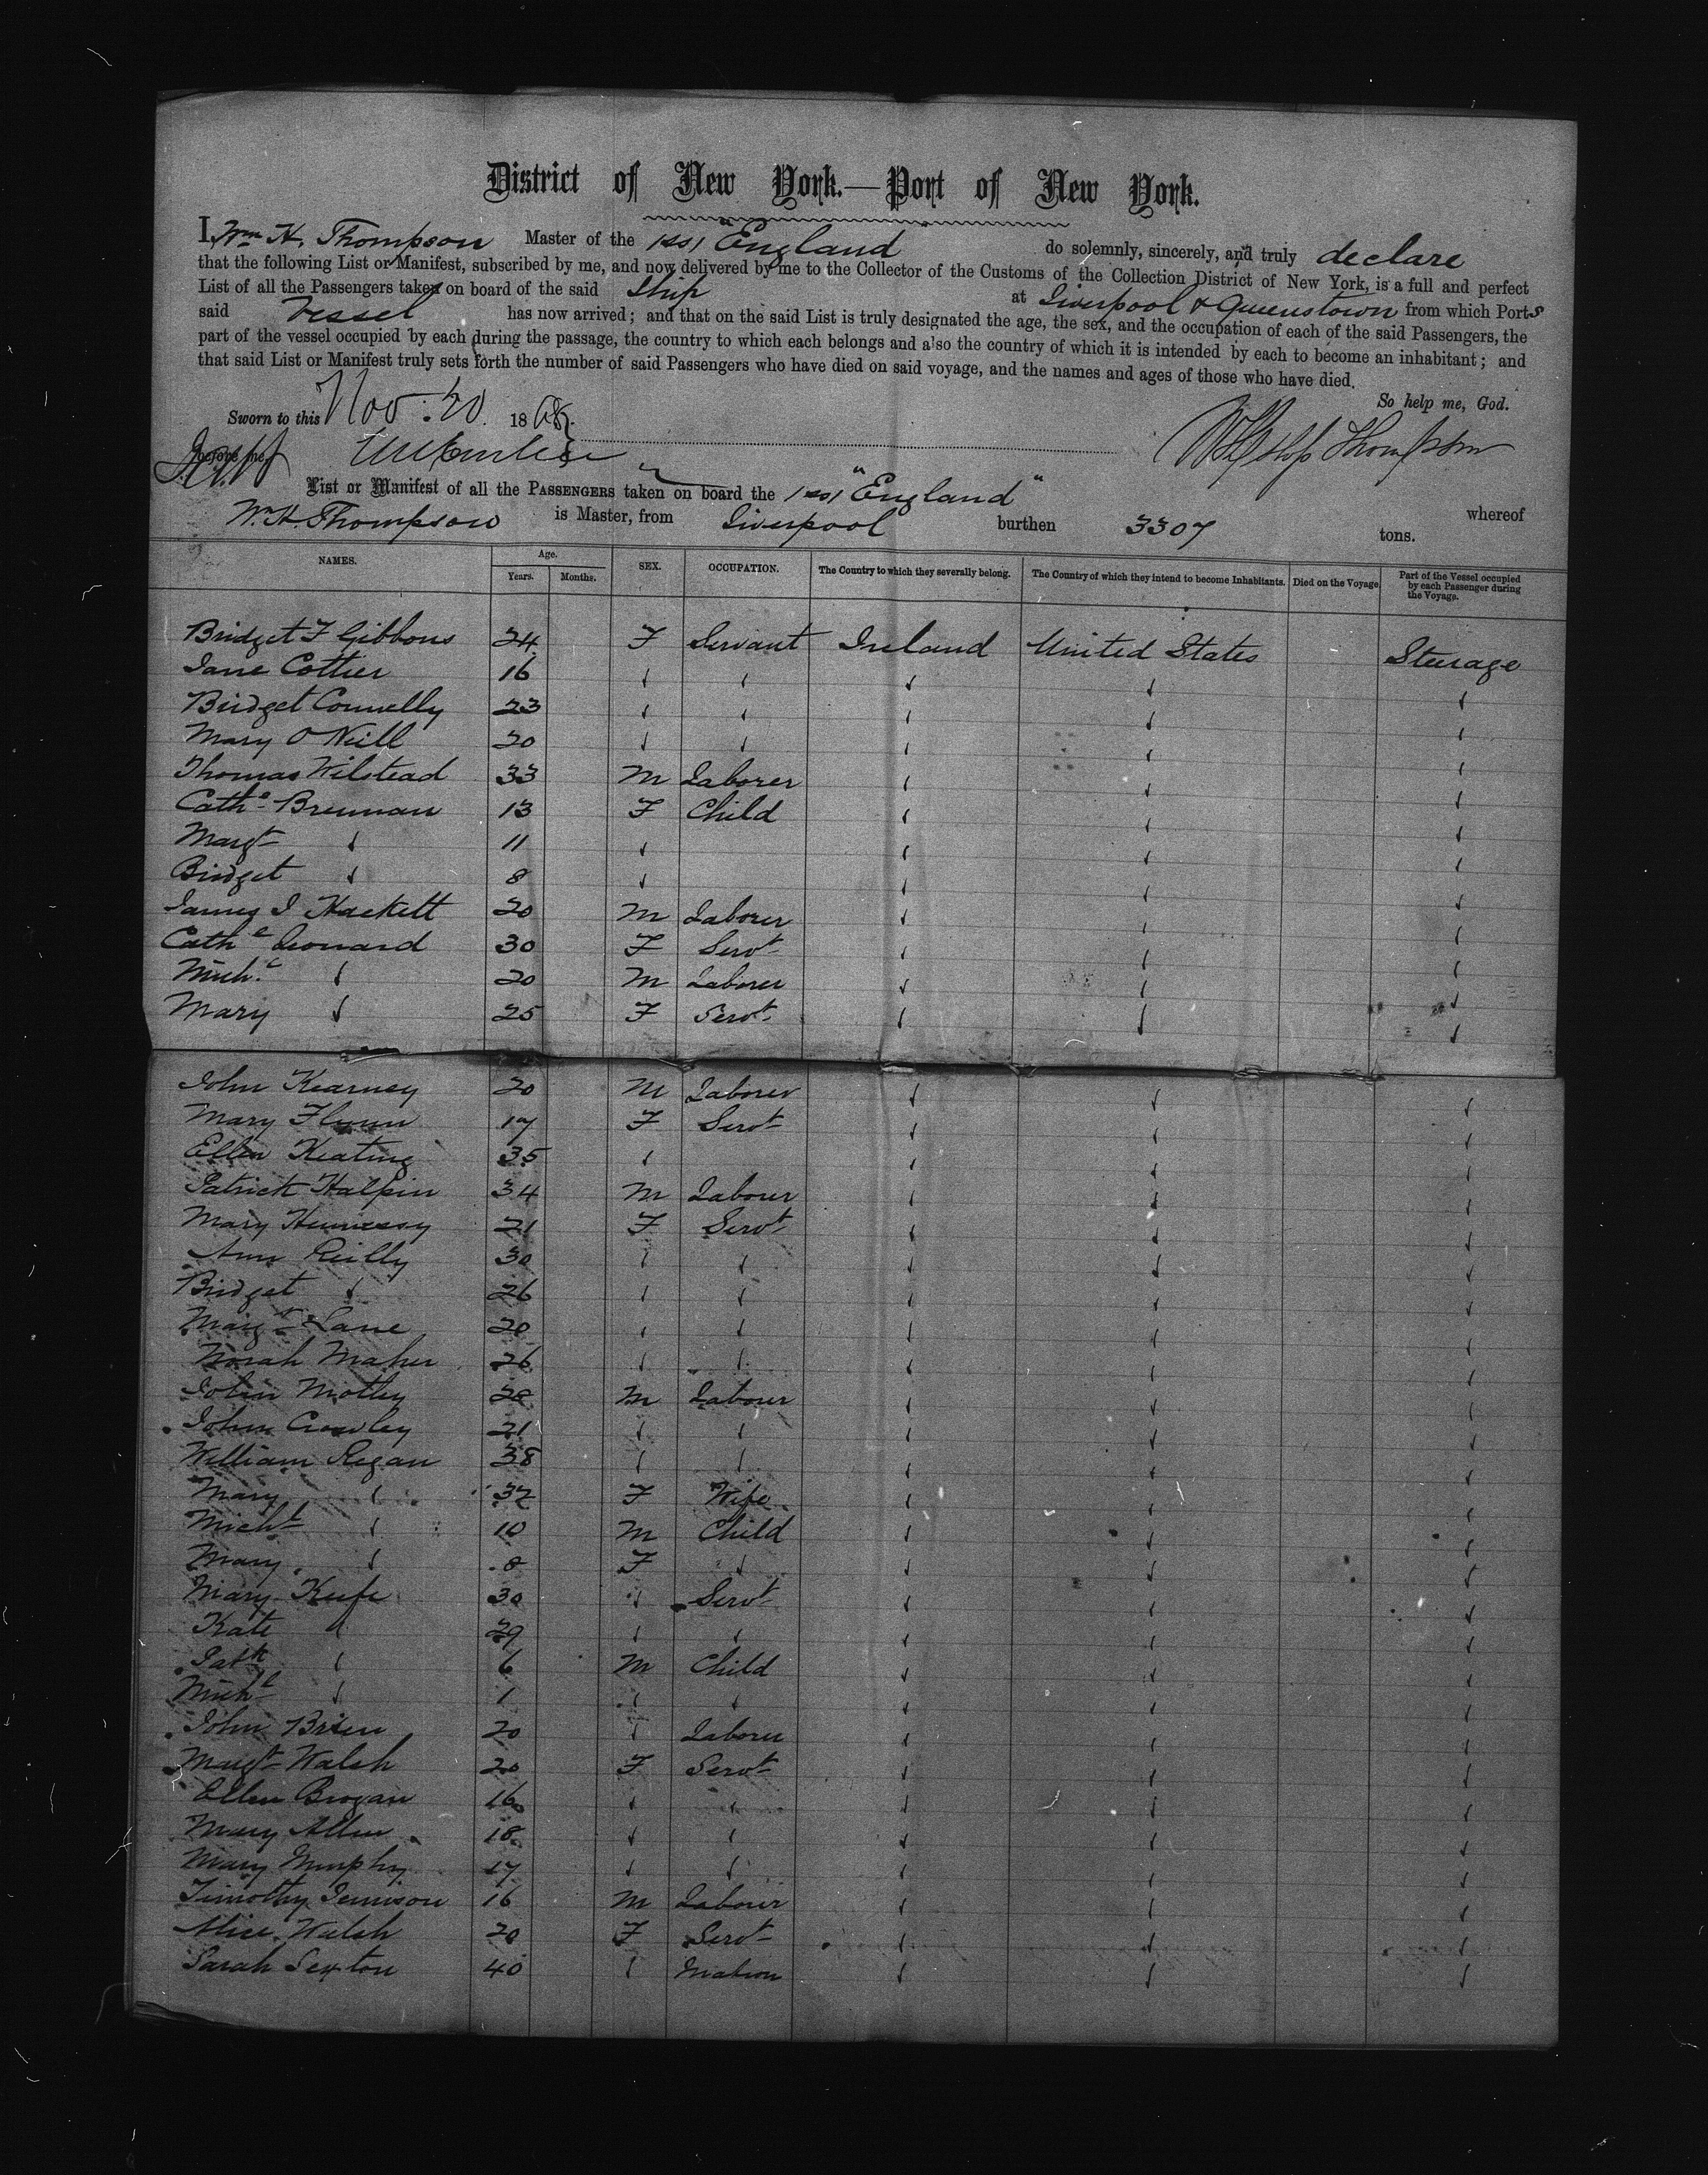 District of New York.—Port of New York.
I, Wm H. Thompson Master of the "England" do solemnly, sincerely, and truly declare
that the following List or Manifest, subscribed by me, and now delivered by me to the Collector of the Customs of the Collection District of New York, is a full and perfect
List of all the Passengers taken on board of the said Ship at Liverpool & Queenstown from which Ports
said Vessel has now arrived; and that on the said List is truly designated the age, the sex, and the occupation of each of the said Passengers, the
part of the vessel occupied by each during the passage, the country to which each belongs and also the country of which it is intended by each to become an inhabitant; and
that said List or Manifest truly sets forth the number of said Passengers who have died on said voyage, and the names and ages of those who have died.
So help me, God.
Sworn to this Nov. 20. 1868.
before me, Thompson
List or Manifest of all the PASSENGERS taken on board the "England" whereof
Wm H Thompson is Master, from Liverpool burthen 3307 tons.
NAMES. Age. Years. Months. SEX. OCCUPATION. The Country to which they severally belong. The Country of which they intend to become Inhabitants. Died on the Voyage. Part of the Vessel occupied by each Passenger during the Voyage.
Bridget F Gibbons 24 F Servant Ireland United States Steerage
Jane Cottier 16 ✓ ✓ ✓ ✓ ✓
Bridget Connelly 23 ✓ ✓ ✓ ✓ ✓
Mary O Neill 20 ✓ ✓ ✓ ✓ ✓
Thomas Wilstead 33 M Laborer ✓ ✓ ✓
Cathe Brennan 13 F Child ✓ ✓ ✓
Margt ✓ 11 ✓ ✓ ✓ ✓
Bridget ✓ 8 ✓ ✓ ✓ ✓
James J Hackett 20 M Laborer ✓ ✓ ✓
Cathe Leonard 30 F Servt ✓ ✓ ✓
Michl ✓ 20 M Laborer ✓ ✓ ✓
Mary ✓ 25 F Servt ✓ ✓ ✓
John Kearney 20 M Laborer ✓ ✓ ✓
Mary Flynn 17 F Servt ✓ ✓ ✓
Ellen Keating 35 ✓ ✓ ✓ ✓
Patrick Halpin 34 M Laborer ✓ ✓ ✓
Mary Hennessy 21 F Servt ✓ ✓ ✓
Ann Reilly 30 ✓ ✓ ✓ ✓ ✓
Bridget ✓ 26 ✓ ✓ ✓ ✓ ✓
Margt Lane 20 ✓ ✓ ✓ ✓ ✓
Norah Maher 26 ✓ ✓ ✓ ✓ ✓
John Motley 28 M Laborer ✓ ✓ ✓
John Crowley 21 ✓ ✓ ✓ ✓ ✓
William Regan 38 ✓ ✓ ✓ ✓ ✓
Mary ✓ 32 F Wife ✓ ✓ ✓
Michl ✓ 10 M Child ✓ ✓ ✓
Mary ✓ 8 F ✓ ✓ ✓ ✓
Mary Keefe 30 ✓ Servt ✓ ✓ ✓
Kate ✓ 29 ✓ ✓ ✓ ✓ ✓
Patk ✓ 6 M Child ✓ ✓ ✓
Michl ✓ 1 ✓ ✓ ✓ ✓ ✓
John Brien 20 ✓ Laborer ✓ ✓ ✓
Margt Walsh 20 F Servt ✓ ✓ ✓
Ellen Brogan 16 ✓ ✓ ✓ ✓ ✓
Mary Allen 18 ✓ ✓ ✓ ✓ ✓
Mary Murphy 17 ✓ ✓ ✓ ✓ ✓
Timothy Jennison 16 M Laborer ✓ ✓ ✓
Alice Walsh 20 F Servt ✓ ✓ ✓
Sarah Sexton 40 ✓ Matron ✓ ✓ ✓